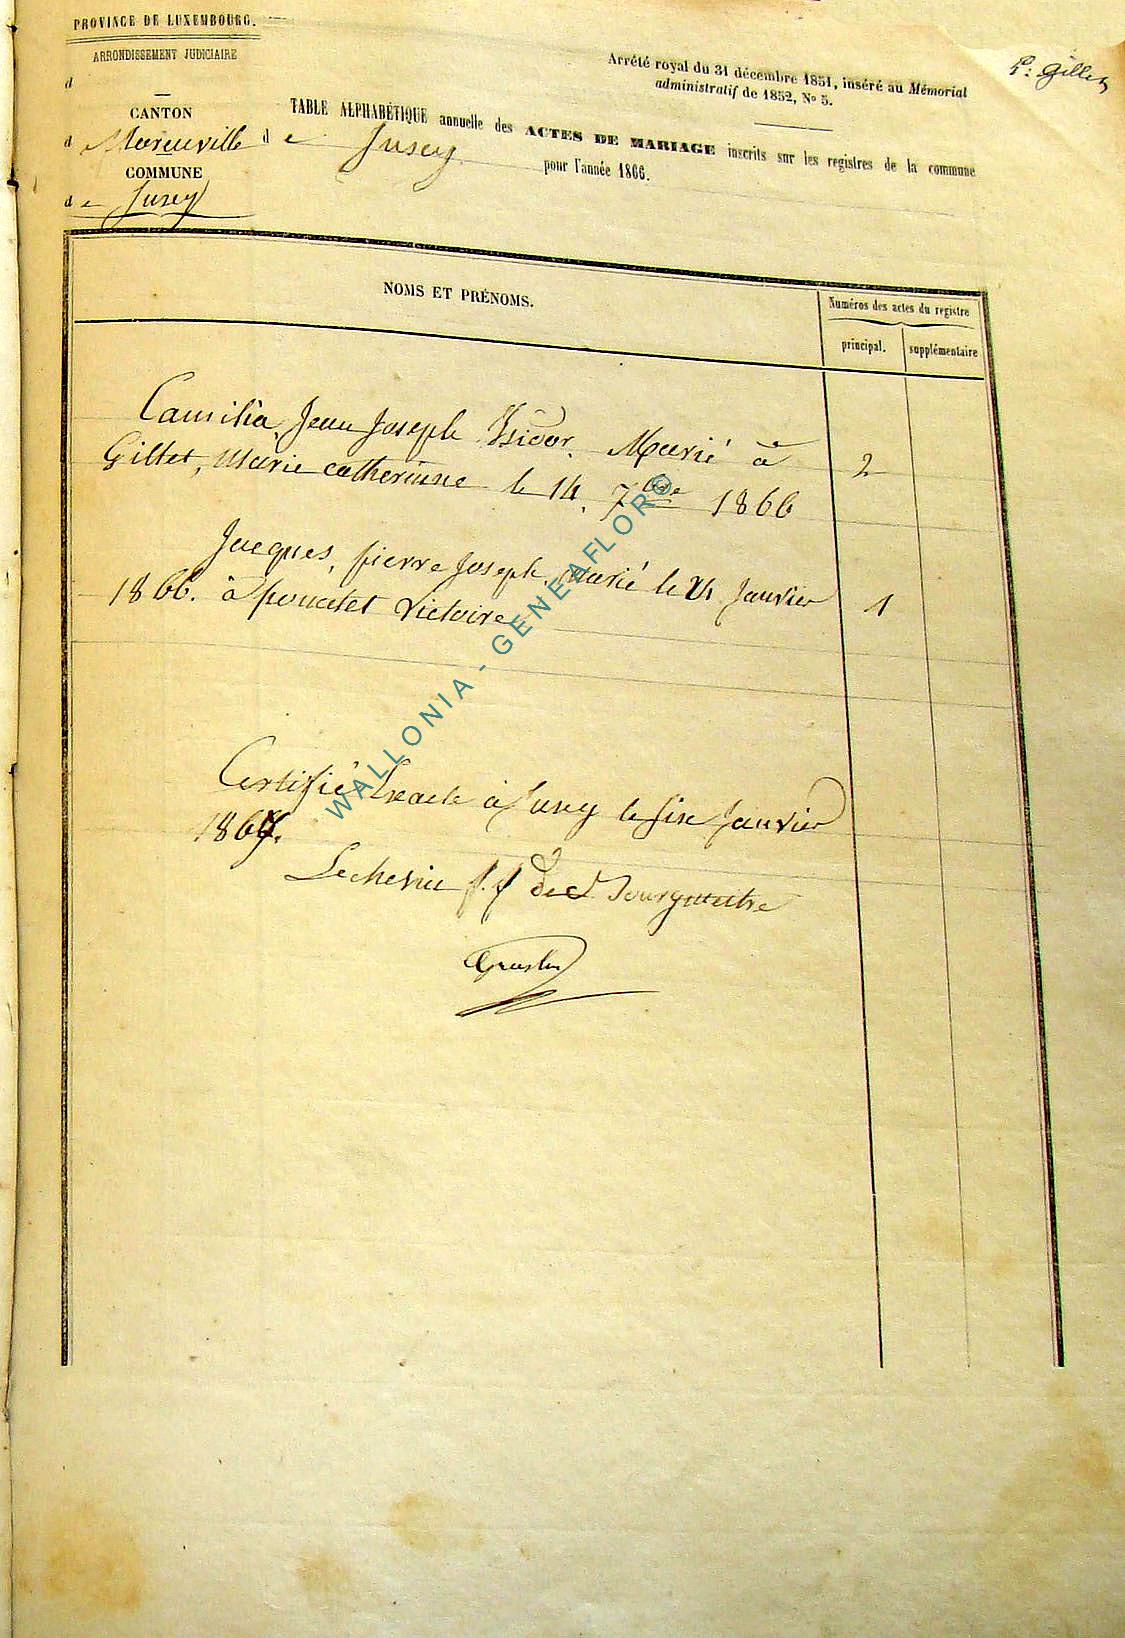 PROVINCE DE LUXEMBOURG.
ARRONDISSEMENT JUDICIAIRE
d
CANTON
de Moreuville
COMMUNE
de Jusey
P: Gillet
Arrêté royal du 31 décembre 1851, inséré au Mémorial
administratif de 1852, No 5.
TABLE ALPHABÉTIQUE annuelle des ACTES DE MARIAGE inscrits sur les registres de la commune
de Jusey pour l'année 1866.
NOMS ET PRÉNOMS.
Numéros des actes du registre
principal. supplémentaire
Camilia, Jean Joseph Isidor. Marié à
Giltet, Marie catherinne le 14. 7bre 1866 2
Jacques, pierre Joseph, marié le 24 Janvier
1866. à ponctet Victoire 1
Certifié Exacte à Jusey le six Janvier
1867.
Lechevin f.f de Bourgmestre
WALLONIA - GENEAFLOR©